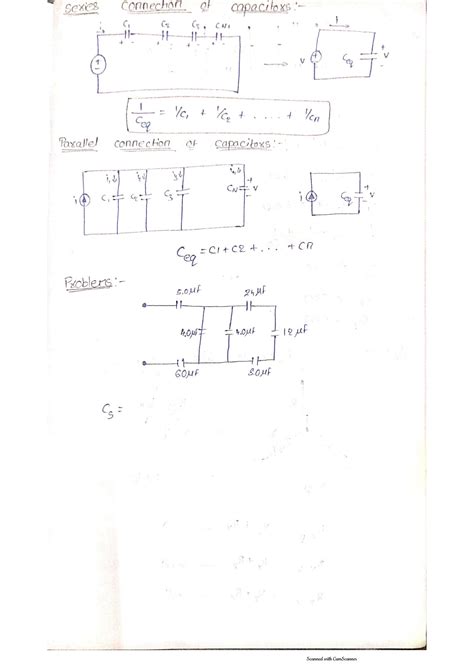 Series Connection of capacitors:-
i C1 C2 C3 CN
+ - + - + - + -
V + Ceq + V -
1/Ceq = 1/C1 + 1/C2 + . . . . + 1/Cn
Parallel connection of capacitors:-
i C1 i1↓ C2 i2↓ C3 i3↓ CN iN↓ + V -
i Ceq + V -
Ceq = C1 + C2 + . . . + Cn
Problems:-
24μf
12μf
60μf
Cs =
Scanned with CamScanner